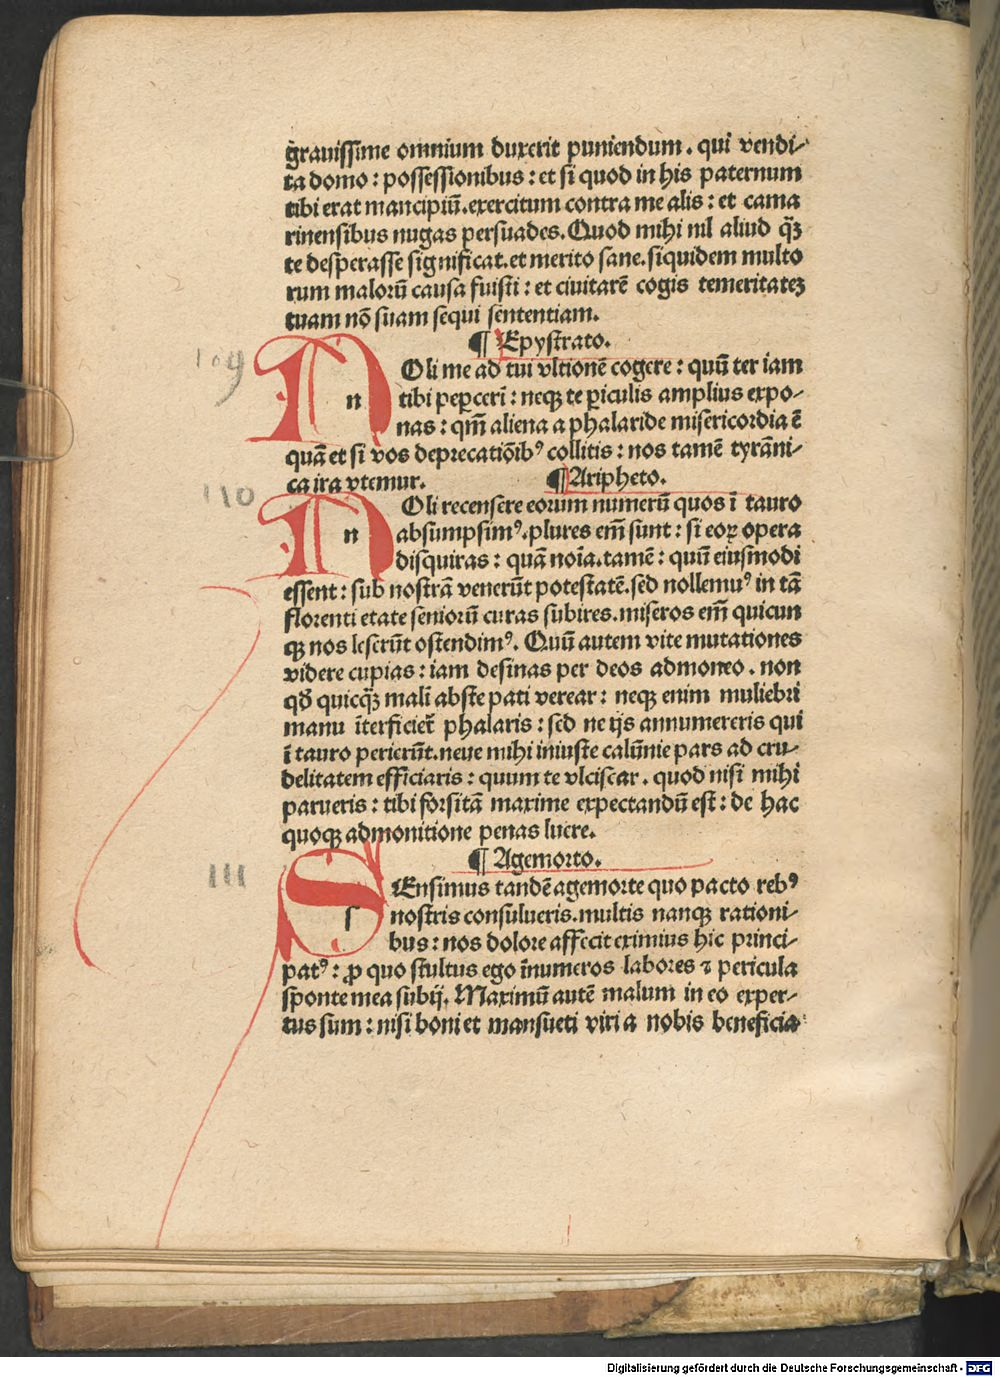 grauissime omnium duxerit puniendum. qui vendi-
ta domo: possessionibus: et si quod in his paternum
tibi erat mancipiū. exercitum contra me alis: et cama
rinensibus nugas persuades. Quod mihi nil aliud qꝫ̄
te desperasse significat. et merito sane. siquidem multo
rum malorū causa fuisti: et ciuitarē cogis temeritateꝫ
tuam nō suam sequi sententiam.
¶ Epystrato.
109
N n Oli me ad tui vltionē cogere: quū ter iam
tibi peꝑceri: neqꝫ te ꝑiculis amplius expo-
nas: qm̄ aliena a phalaride misericordia ē
quā et si vos deprecatiōibꝰ collitis: nos tamē tyrāni-
ca ira vtemur. ¶ Aripheto.
110
N n Oli recensere eorum numerū quos ī tauro
absumpsimꝰ. plures em̄ sunt: si eoꝝ opera
disquiras: quā noīa. tamē: quū eiusmodi
essent: sub nostrā venerūt potestatē. sed nollemuꝰ in tā
florenti etate seniorū curas subires. miseros em̄ quicun
qꝫ nos leserūt ostendimꝰ. Quū autem vite mutationes
videre cupias: iam desinas per deos admoneo. non
qđ quicqꝫ̄ mali abste pati verear: neqꝫ enim muliebri
manu īterficiet̄ phalaris: sed ne ijs annumereris qui
ī tauro perierūt. neue mihi iniuste calūnie pars ad cru-
delitatem efficiaris: quum te vlciscar. quod nisi mihi
parueris: tibi forsitā maxime expectandū est: de hac
quoqꝫ admonitione penas luere.
¶ Agemorto.
111
S s Ensimus tandē agemorte quo pacto rebꝰ
nostris consulueris. multis nanqꝫ rationi-
bus: nos dolore affecit eximius hic princi-
patꝰ: ꝓ quo stultus ego īnumeros labores ⁊ pericula
sponte mea subij. Maximū autē malum in eo exper-
tus sum: nisi boni et mansueti viri a nobis beneficia
Digitalisierung gefördert durch die Deutsche Forschungsgemeinschaft - DFG